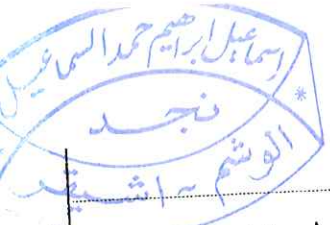 إسماعيل إبراهيم حمد السماعيل
نجد
الوشم - أشيقر